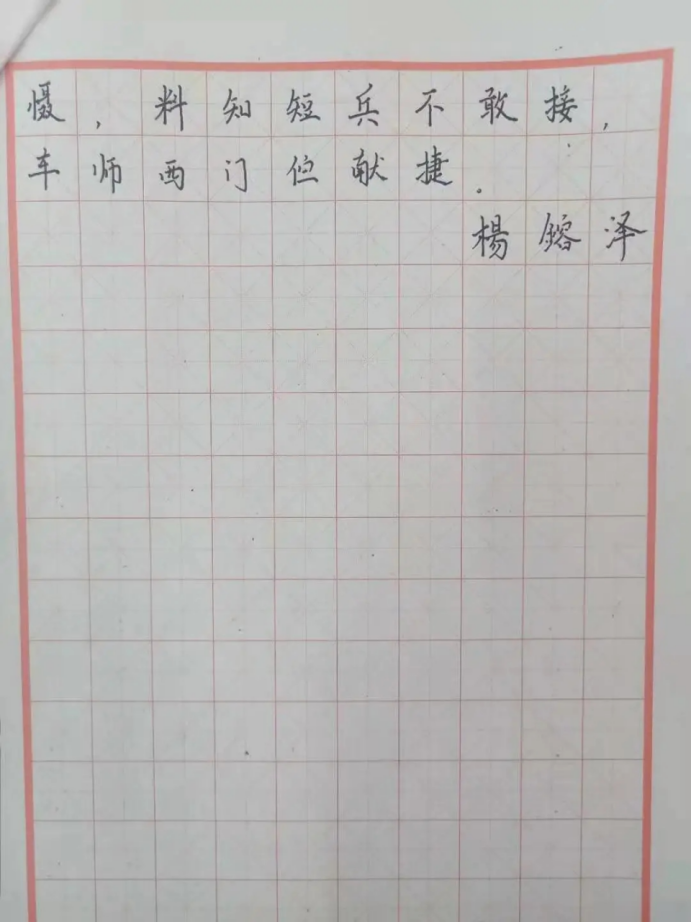 慑，料知短兵不敢接，
车师西门伫献捷.
楊鎔泽